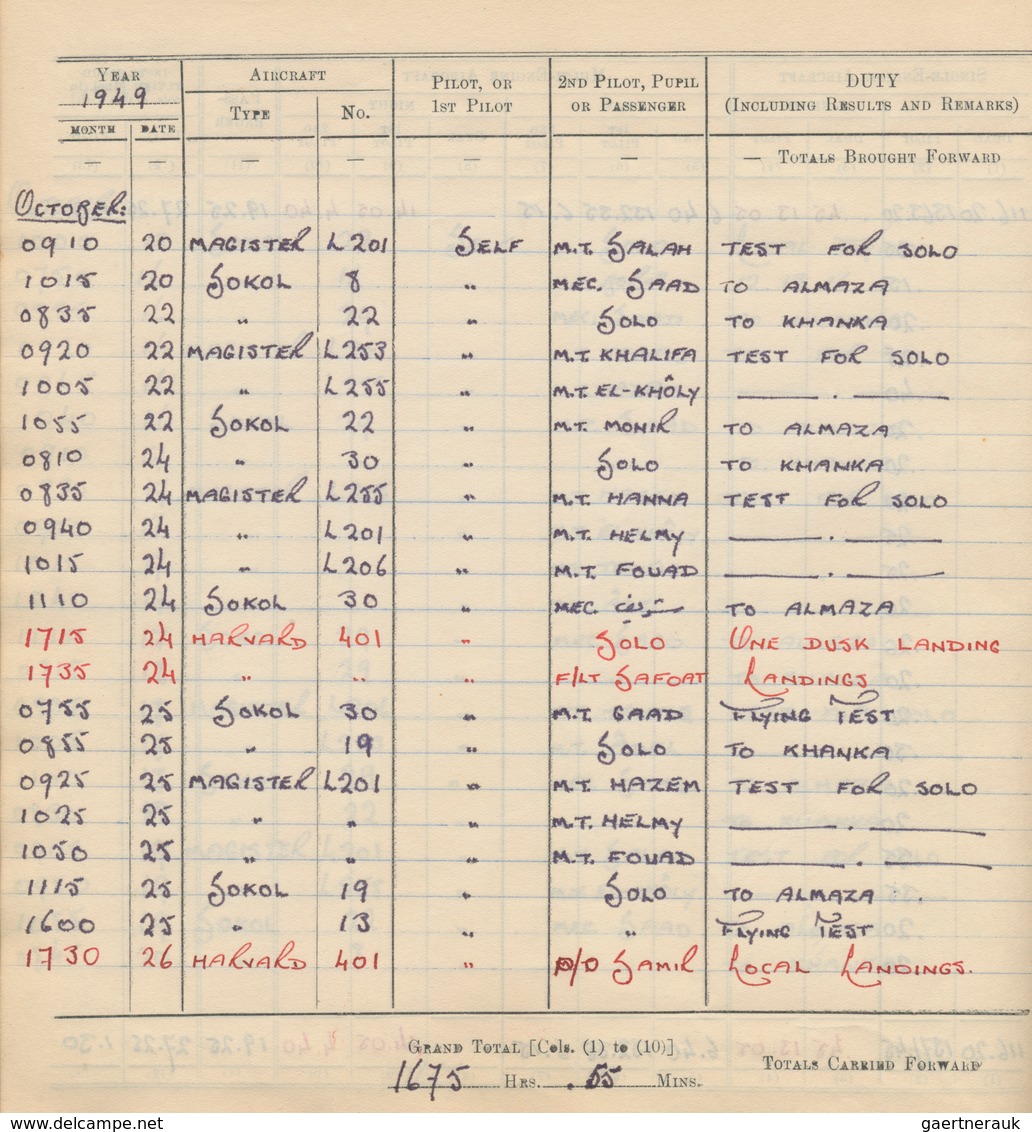 YEAR 1949 AIRCRAFT PILOT, OR 1ST PILOT 2ND PILOT, PUPIL OR PASSENGER DUTY (INCLUDING RESULTS AND REMARKS)
MONTH DATE TYPE NO.
— — — — — — — TOTALS BROUGHT FORWARD
OCTOBER:
0910 20 MAGISTER L201 SELF M.T. SALAH TEST FOR SOLO
1015 20 SOKOL 8 " MEC. SAAD TO ALMAZA
0835 22 " 22 " SOLO TO KHANKA
0920 22 MAGISTER L253 " M.T. KHALIFA TEST FOR SOLO
1005 22 " L255 " M.T. EL-KHÔLY —— . ——
1055 22 SOKOL 22 " M.T. MONIR TO ALMAZA
0810 24 " 30 " SOLO TO KHANKA
0835 24 MAGISTER L255 " M.T. HANNA TEST FOR SOLO
0940 24 " L201 " M.T. HELMY —— . ——
1015 24 " L206 " M.T. FOUAD —— . ——
1110 24 SOKOL 30 " MEC. TO ALMAZA
1715 24 HARVARD 401 " SOLO ONE DUSK LANDING
1735 24 " " " F/LT SAFOAT LANDINGS
0755 25 SOKOL 30 " M.T. GAAD FLYING TEST
0855 25 " 19 " SOLO TO KHANKA
0925 25 MAGISTER L201 " M.T. HAZEM TEST FOR SOLO
1025 25 " " " M.T. HELMY —— . ——
1050 25 " " " M.T. FOUAD —— . ——
1115 25 SOKOL 19 " SOLO TO ALMAZA .
1600 25 " 13 " " FLYING TEST
1730 26 HARVARD 401 " P/O SAMIR LOCAL LANDINGS.
GRAND TOTAL [Cols. (1) to (10)]
1675 HRS. .55 MINS. TOTALS CARRIED FORWARD
gaertnerauk
www.delcampe.net